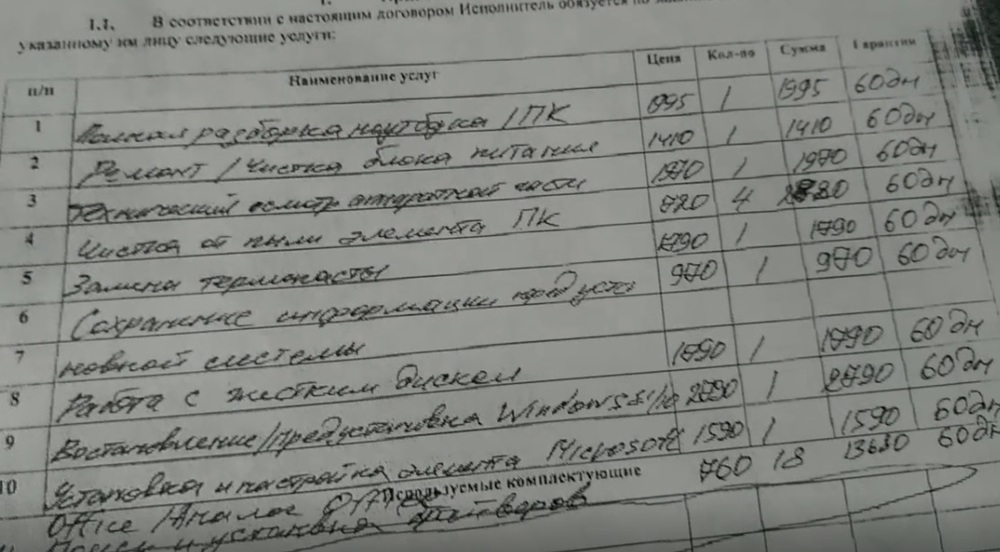 1.1. В соответствии с настоящим договором Исполнитель обязуется по
указанному им лицу следующие услуги:
п/п Наименование услуг Цена Кол-во Сумма Гарантии
1 Полная разборка ноутбука / ПК 1995 1 1995 60дн
2 Ремонт / Чистка блока питания 1410 1 1410 60дн
3 Технический осмотр аппаратной части 1970 1 1970 60дн
4 Чистка от пыли элемента ПК 720 4 2880 60дн
5 Замена термопасты 1790 1 1790 60дн
6 Сохранение информации перед уста 970 1 970 60дн
7 новкой системы
8 Работа с жестким диском 1790 1 1790 60дн
9 Востановление/предустановка Windows 2790 1 2790 60дн
10 Установка и настройка элемента Microsoft 1590 1 1590 60дн
Office / Аналог Office 760 18 13680 60дн
Используемые комплектующие
Поиск и установка драйверов